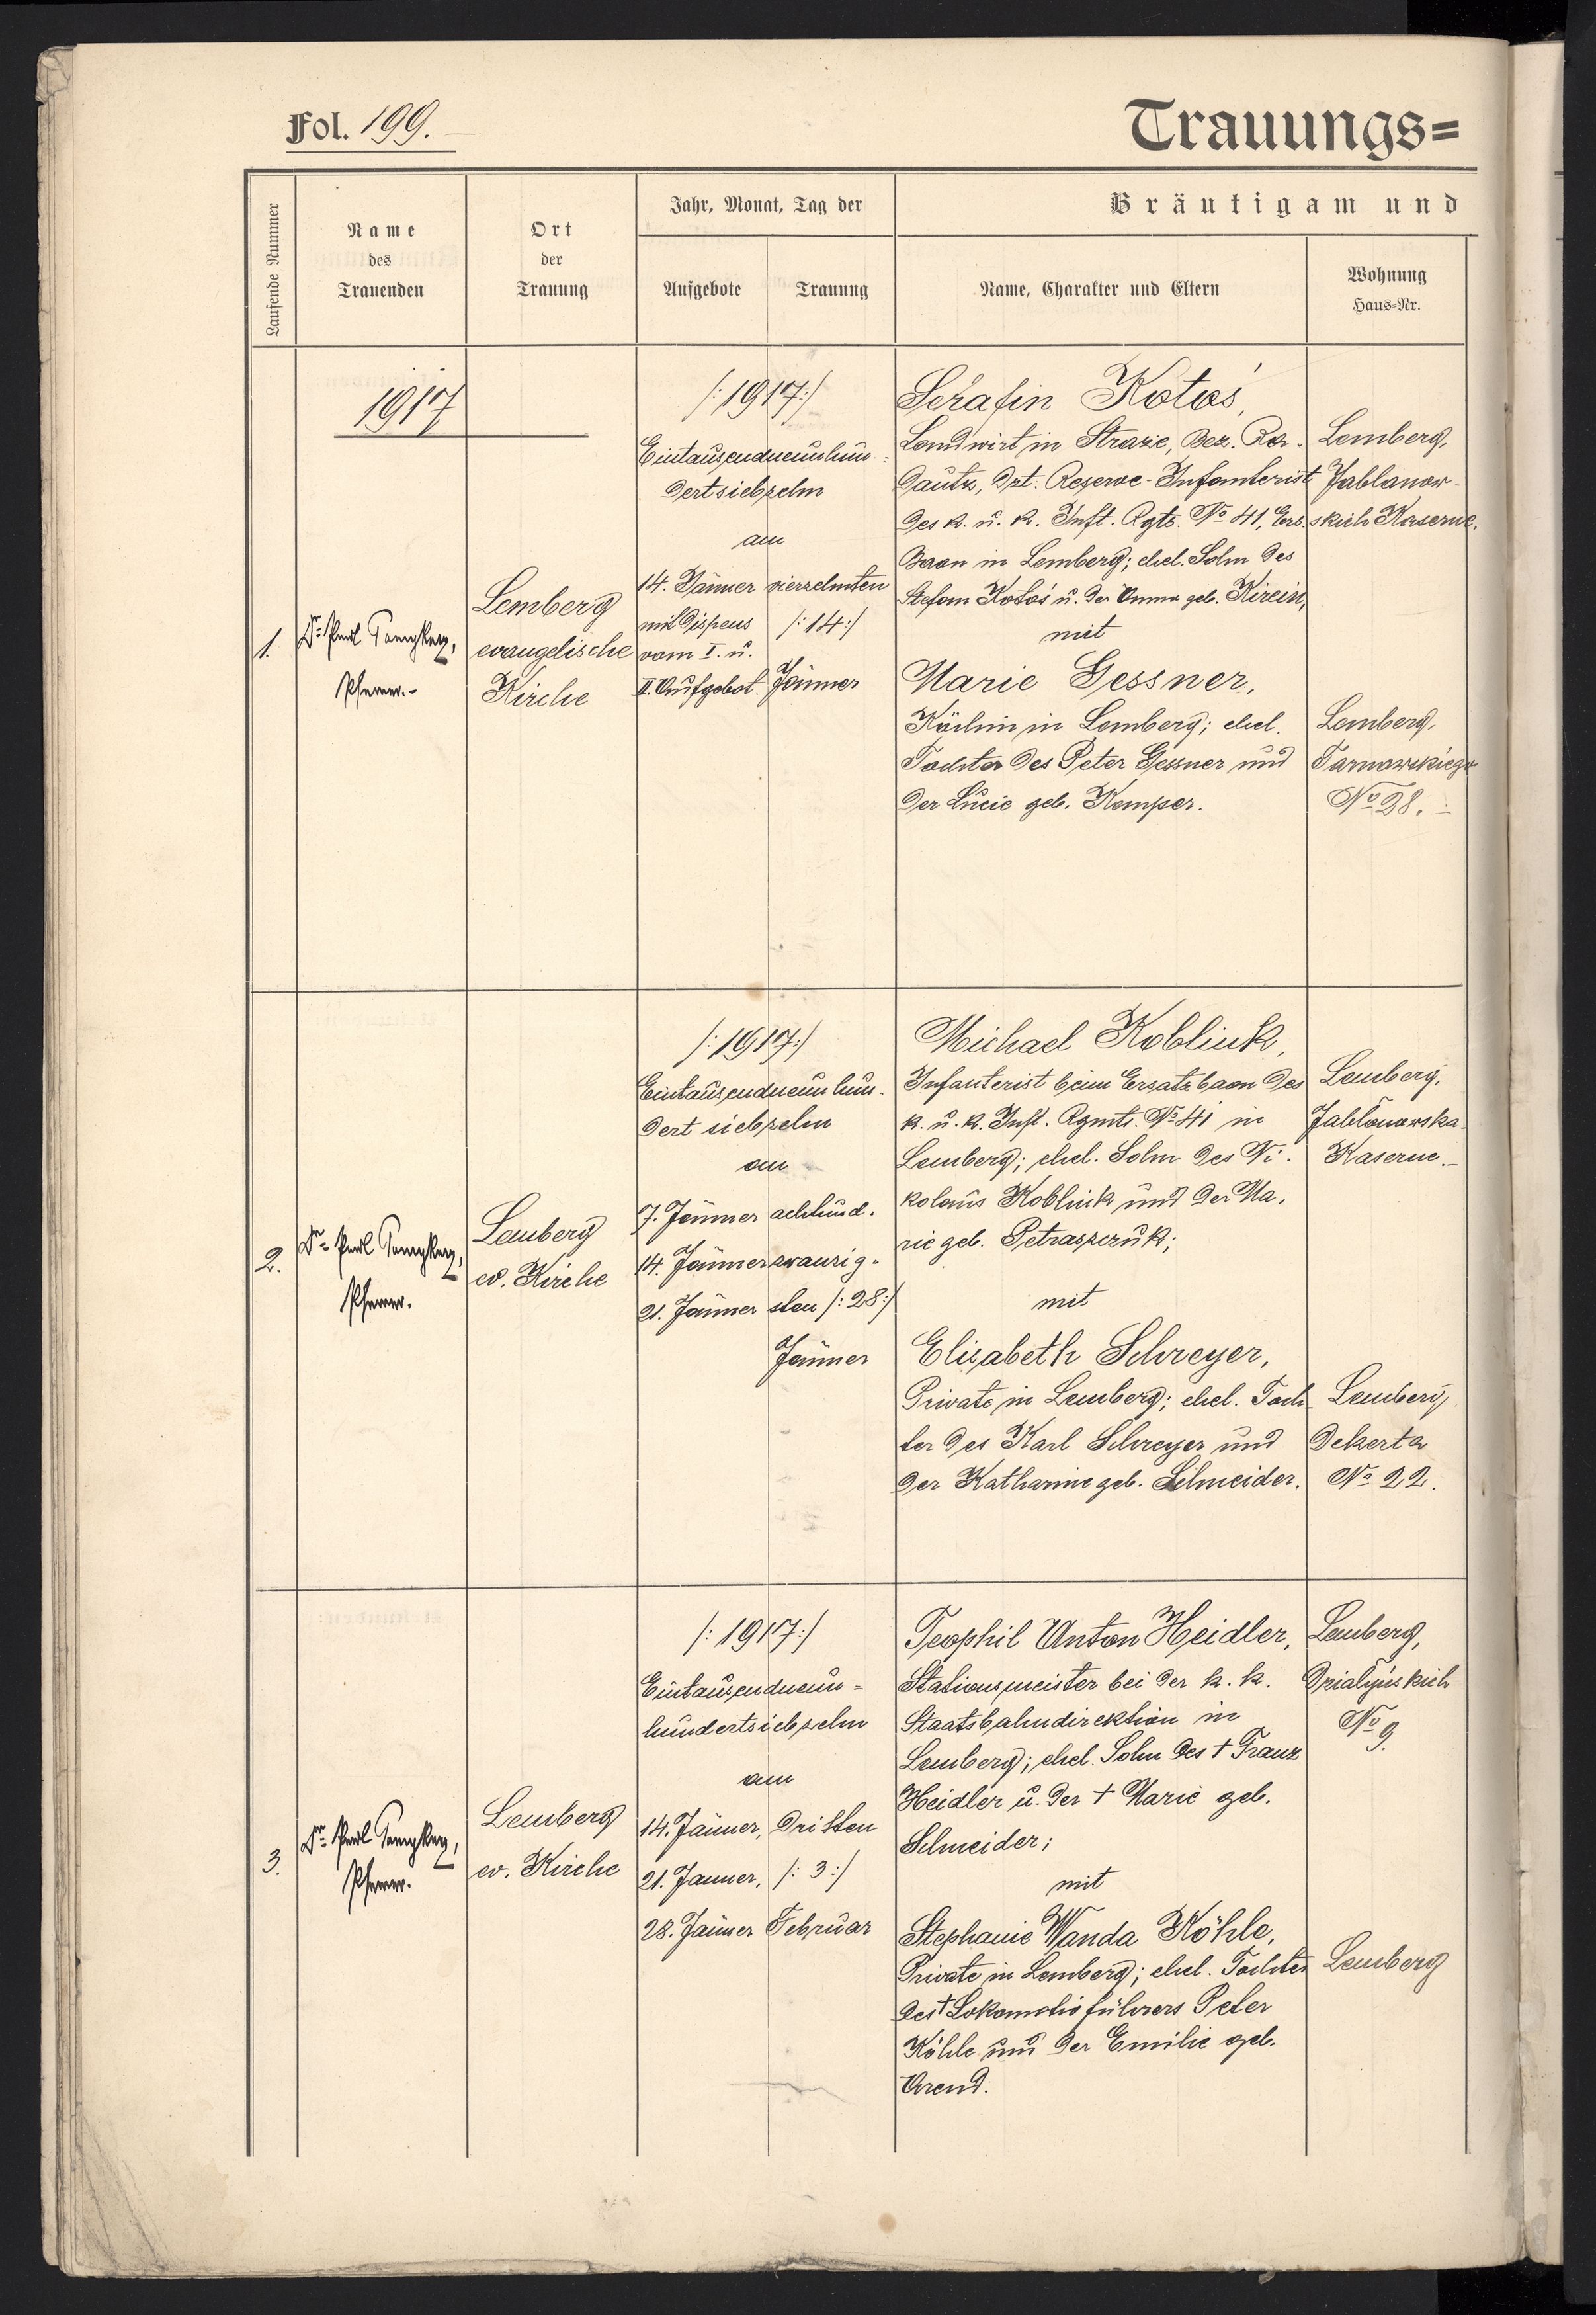 Fol. 199.
Trauungs=
Laufende Nummer
Name
des
Trauenden
Ort
der
Trauung
Jahr, Monat, Tag der
Aufgebote
Trauung
Bräutigam und
Name, Charakter und Eltern
Wohnung
Haus=Nr.
1917
1.
Pfarrer.-
Lemberg
evangelische
Kirche
/:1917:/
Eintausendneunhun=
dertsiebzehn
am
14. Jänner vierzehnten
mit Dispens /:14:/
vom I. u.
II. Aufgebot. Jänner
Serafin Kotoś,
Landwirt in Straże, Bez. Ra-
dautz, dzt. Reserve-Infanterist
des k. u. k. Inft. Rgts. No 41, Ers.
Baon in Lemberg; ehel. Sohn des
Stefan Kotoś u. der Anna geb. Kirein,
mit
Marie Gessner,
Köchin in Lemberg; ehel.
Tochter des Peter Gessner und
der Lucie geb. Kamper.
Lemberg,
Jablanow-
skich Kaserne.
Lemberg,
Tarnowskiego
No 28.
2.
Pfarrer.
Lemberg
ev. Kirche
/:1917:/
Eintausendneunhun-
dert siebzehn
am
7. Jänner achtund-
14. Jänner zwanzig-
21. Jänner sten /:28:/
Jänner
Michael Kobliuk,
Infanterist beim Ersatzbaon des
k. u. k. Inft. Rgmts. No 41 in
Lemberg; ehel. Sohn des Ni-
kolaus Kobliuk und der Ma-
rie geb. Petraszczuk;
mit
Elisabeth Schreyer,
Private in Lemberg; ehel. Toch-
ter des Karl Schreyer und
der Katharine geb. Schneider.
Lemberg,
Jabłonowska-
Kaserne.-
Lemberg
Dekerta
No 22.
3.
Pfarrer.
Lemberg
ev. Kirche
/:1917:/
Eintausendneun=
hundertsiebzehn
am
14. Jänner, dritten
21. Jänner, /:3:/
28. Jänner Februar
Teophil Anton Heidler,
Stationsmeister bei der k. k.
Staatsbahndirektion in
Lemberg; ehel. Sohn des † Franz
Heidler u. der † Marie geb.
Schneider;
mit
Stephanie Wanda Köhle,
Private in Lemberg; ehel. Tochter
des † Lokomotivführers Peter
Köhle und der Emilie geb.
Arend.
Lemberg,
Dzialyńskich
No 9.
Lemberg